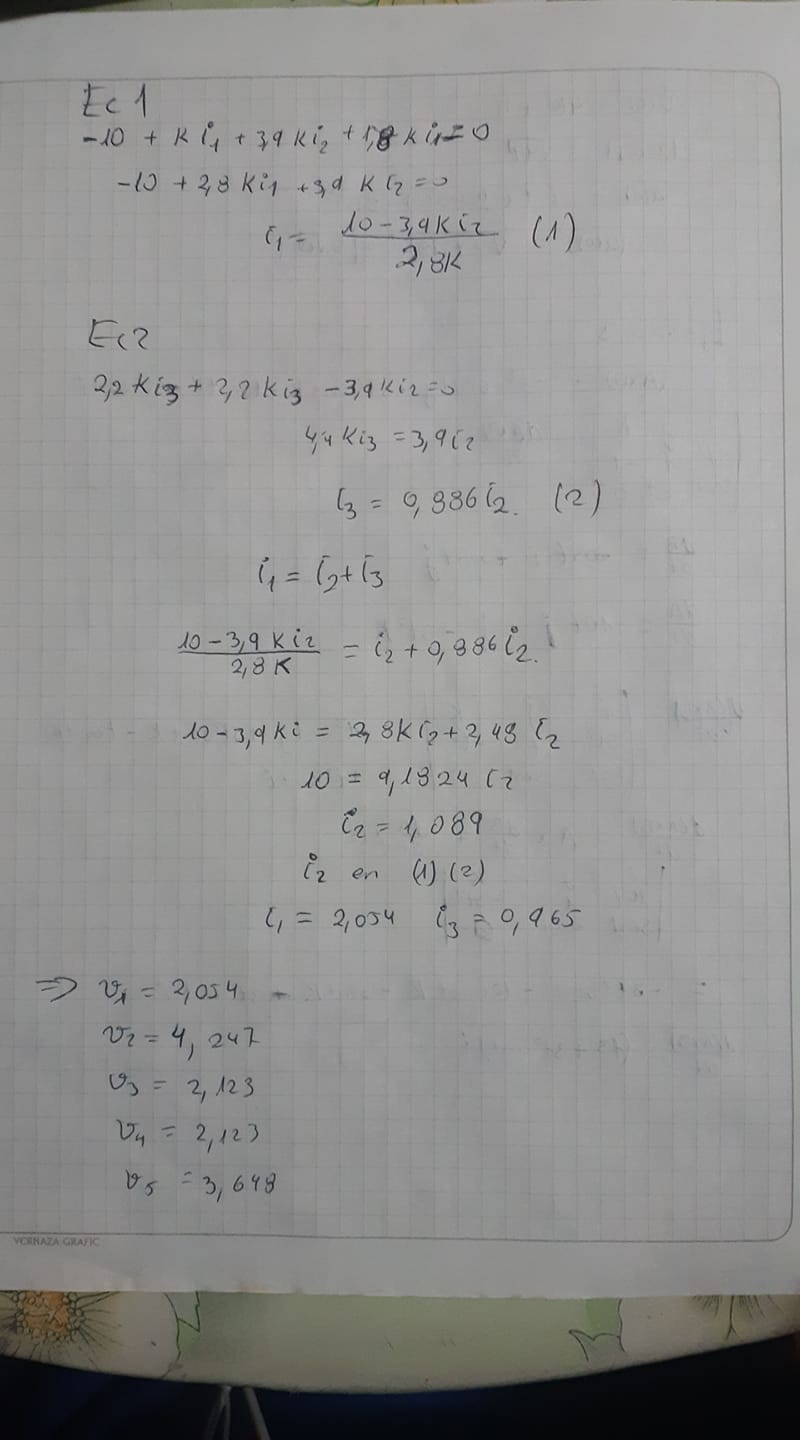 Ec 1
-10 + K i₁ + 3,9 K i₂ + 1,8 K i₁ = 0
-10 + 2,8 K i₁ + 3,9 K i₂ = 0
i₁ = (10 - 3,9 K i₂) / 2,8K (1)
Ec2
2,2 K i₃ + 2,2 K i₃ - 3,9 K i₂ = 0
4,4 K i₃ = 3,9 i₂
i₃ = 0,886 i₂. (2)
i₁ = i₂ + i₃
(10 - 3,9 K i₂) / 2,8 K = i₂ + 0,886 i₂.
10 - 3,9 K i = 2,8 K i₂ + 2,48 i₂
10 = 9,1824 i₂
i₂ = 1,089
i₂ en (1) (2)
i₁ = 2,054 i₃ = 0,965
⇒ v₁ = 2,054 -
v₂ = 4,247
v₃ = 2,123
v₄ = 2,123
v₅ = 3,648
VERNAZA GRAFIC